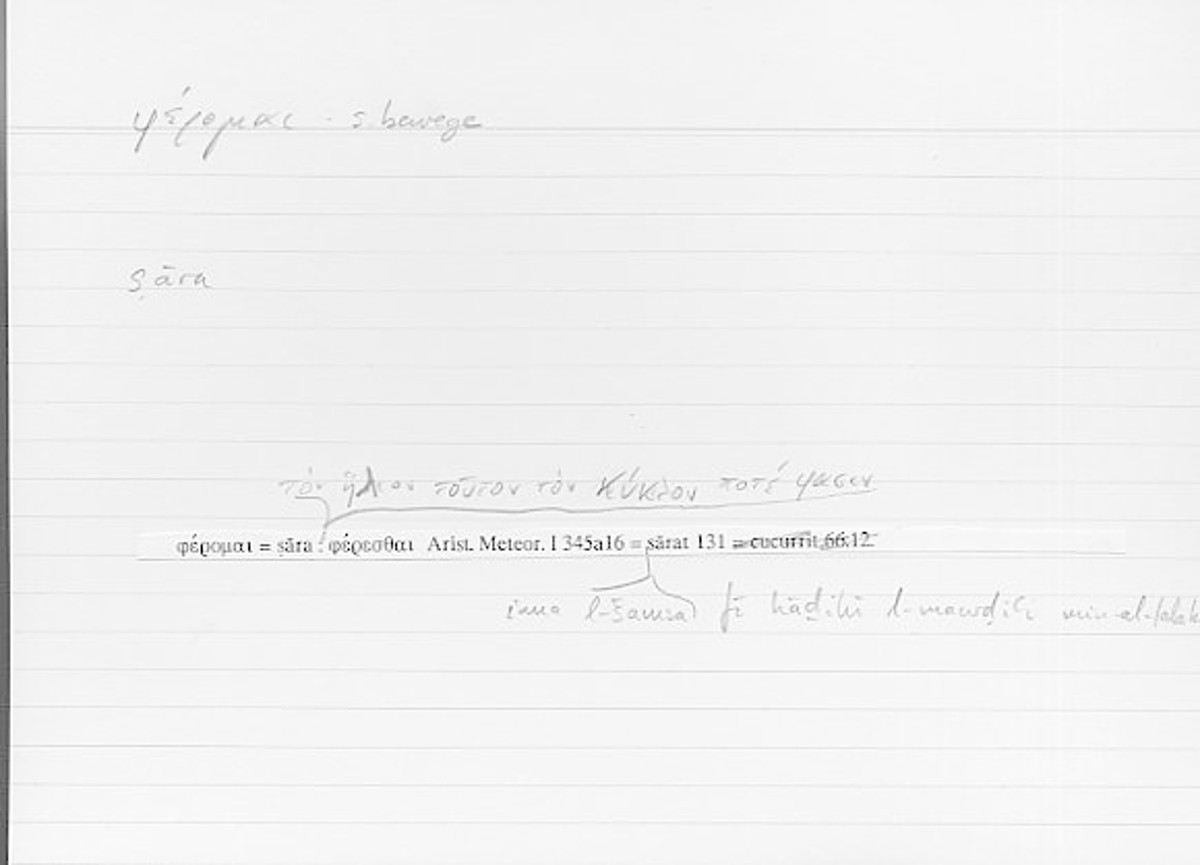 φέρομαι · s. bewege
ṣāra
τὸν ἥλιον τοῦτον τὸν κύκλον ποτέ φασιν
φέρομαι = ṣāra : φέρεσθαι Arist. Meteor. I 345a16 = ṣārat 131 = cucurrit 66.12
inna l-šamsa fī hāḏihī l-mawḍiʿi min al-falak